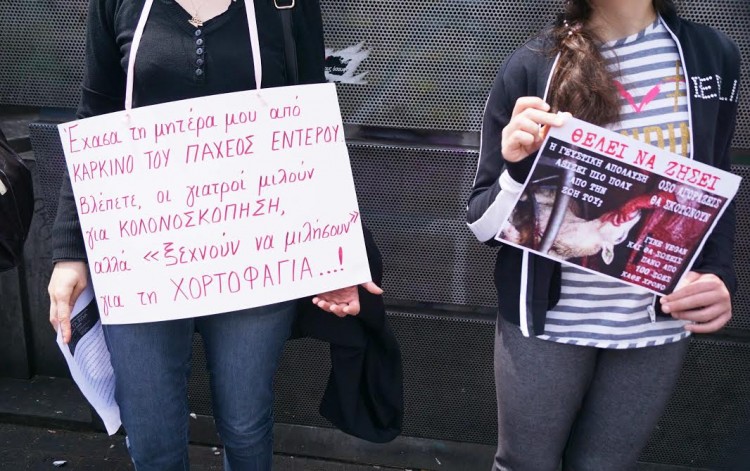 Έχασα τη μητέρα μου από
ΚΑΡΚΙΝΟ ΤΟΥ ΠΑΧΕΟΣ ΕΝΤΕΡΟΥ
Βλέπετε, οι γιατροί μιλούν
για ΚΟΛΟΝΟΣΚΟΠΗΣΗ,
αλλά «ξεχνούν να μιλήσουν»
για τη ΧΟΡΤΟΦΑΓΙΑ...!
ΘΕΛΕΙ ΝΑ ΖΗΣΕΙ
Η ΓΕΥΣΤΙΚΗ ΑΠΟΛΑΥΣΗ
ΑΞΙΖΕΙ ΠΙΟ ΠΟΛΥ
ΑΠΟ ΤΗΝ
ΖΩΗ ΤΟΥ;
ΟΣΟ ΑΓΟΡΑΖΕΙΣ
ΘΑ ΣΚΟΤΩΝΟΥΝ
ΓΙΝΕ VEGAN
ΚΑΙ ΘΑ ΣΩΣΕΙΣ
ΠΑΝΩ ΑΠΟ
100 ΖΩΕΣ
ΚΑΘΕ ΧΡΟΝΟ